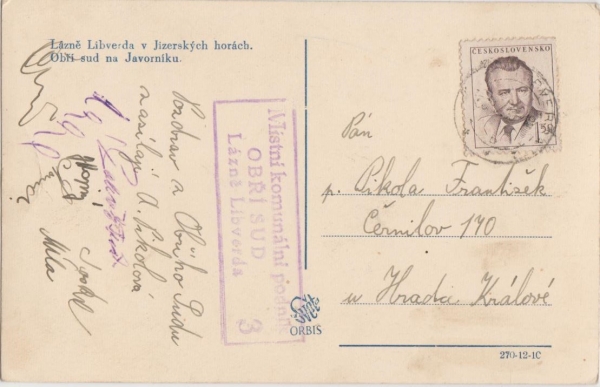 Lázně Libverda v Jizerských horách.
Obří sud na Javorníku.
Pozdrav z Obřího Sudu
zasílají A. Pikolová
Míla
Místní komunální podnik
OBŘÍ SUD
Lázně Libverda
3
ČESKOSLOVENSKO
1.50
Pán
p. Pikola František
Černilov 170
u Hradce Králové
Svět
ORBIS
270-12-1C